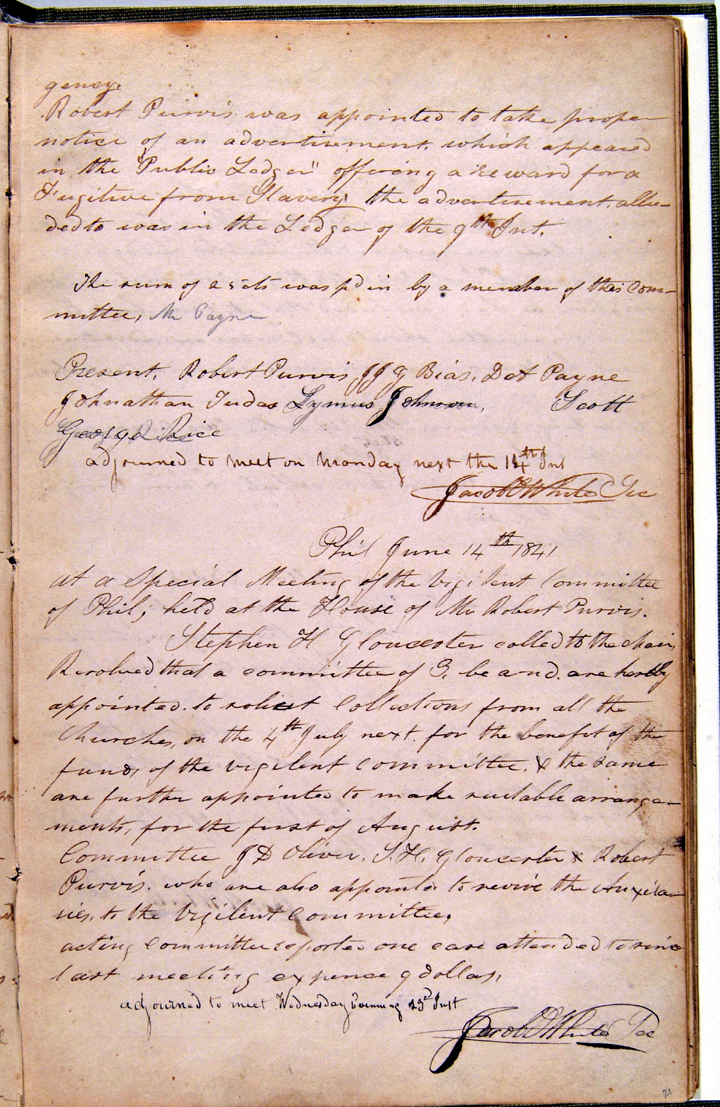 gency.
Robert Purvis was appointed to take proper
notice of an advertisement, which appeared
in the "Public Ledger" offering a reward for a
Fugitive from Slavery, the advertisement, allu-
ded to was in the Ledger of the 9th Int.
The sum of 25cts was pd in by a member of this Com-
mittee, Mr Payne
Present, Robert Purvis J J G Bias, D A Payne
Johnathan Judas Lymus Johnson, Scott
George Rice
adjourned to meet on Monday next the 14th Int
Jacob C White Sec
Phil June 14th 1841
At a Special Meeting of the Vigilent Committee
of Phil; held at the House of Mr Robert Purvis.
Stephen H Gloucester called to the chair,
Resolved that a committee of 3. be and. are hereby
appointed. to solicit Collections from all the
Churches, on the 4th July next. for the benefit of the
funds, of the vigilent committee. & the same
are further appointed to make suitable arrange-
ments, for the first of August.
Committee J D Oliver. S. H. Gloucester & Robert
Purvis. who are also appointed to revive the Auxila-
ries, to the Vigilent Committee,
acting Committee reported one case attended to since
last meeting expence 9 dollas,
adjourned to meet Wednesday Evening 23rd Inst
Jacob C White Sec
21